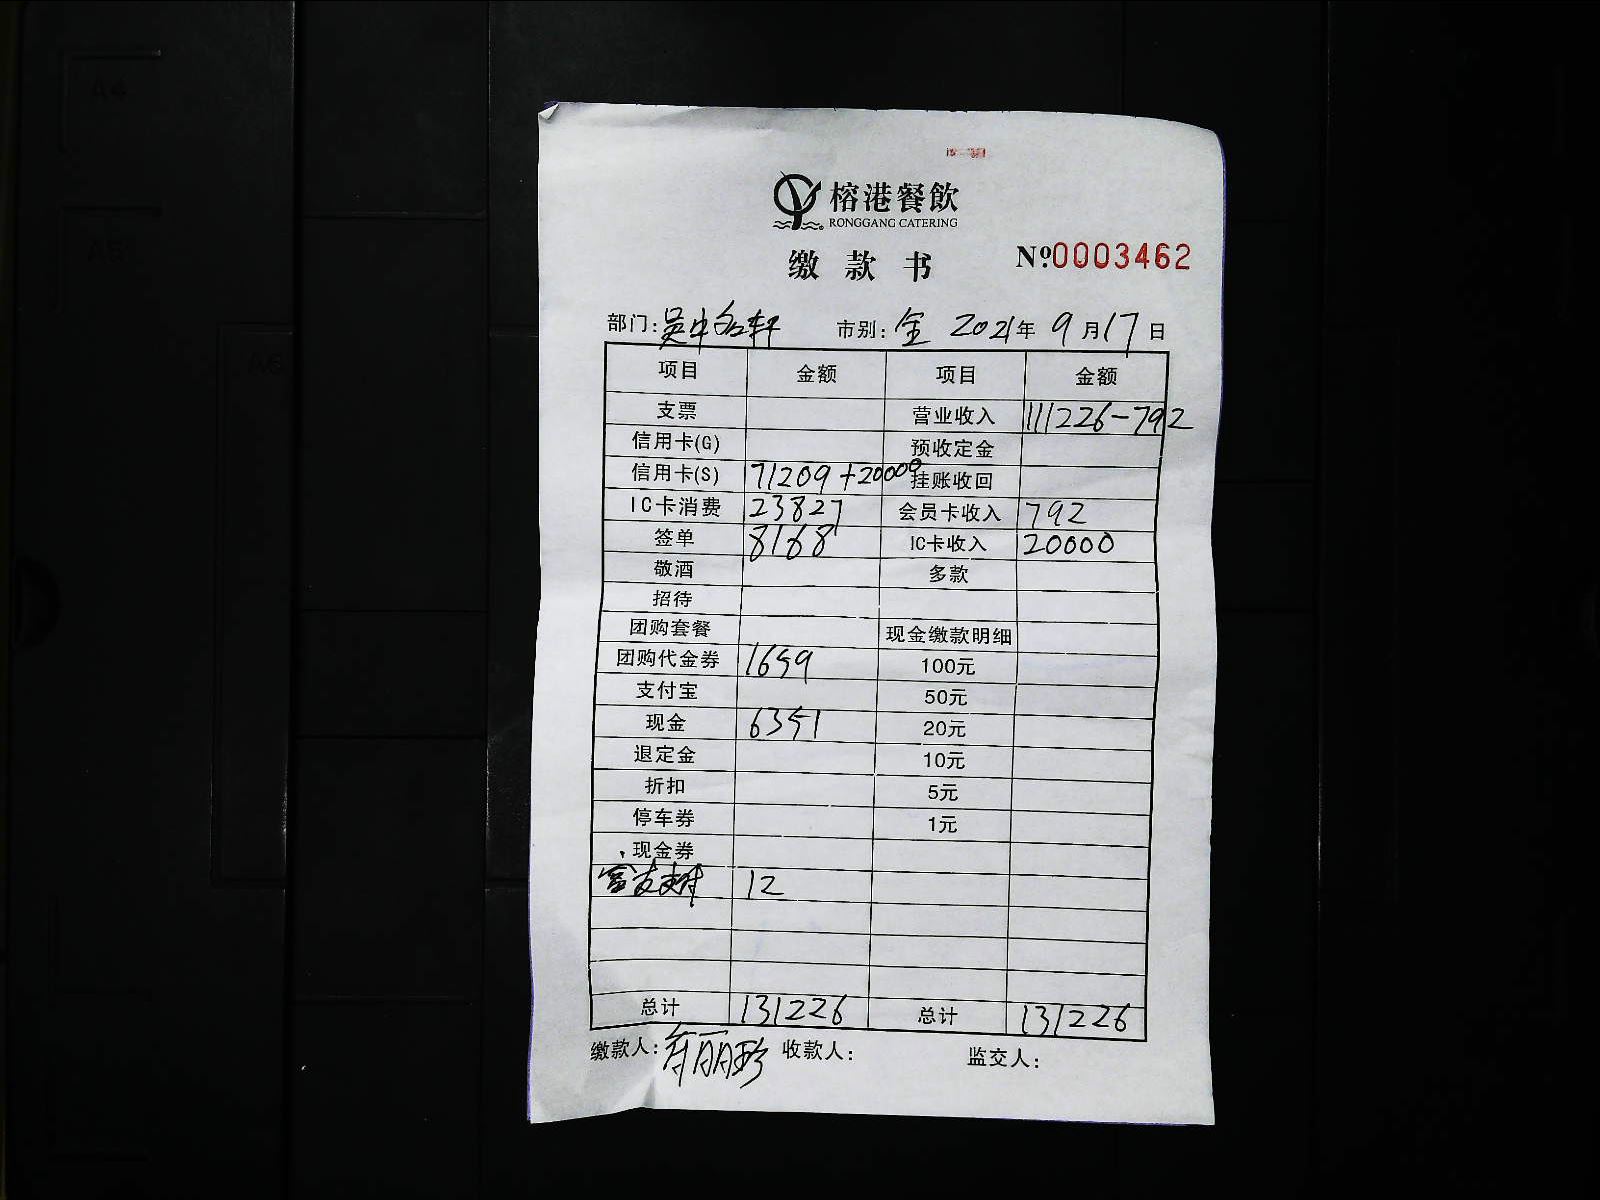 A4
A5
A6
榕港餐飲
RONGGANG CATERING
缴款书 №0003462
部门:吴中名轩 市别:全 2021年9月17日
项目 金额 项目 金额
支票 营业收入 111226-792
信用卡(G) 预收定金
信用卡(S) 71209+20000 挂账收回
IC卡消费 23827 会员卡收入 792
签单 8168 IC卡收入 20000
敬酒 多款
招待
团购套餐 现金缴款明细
团购代金券 1659 100元
支付宝 50元
现金 6351 20元
退定金 10元
折扣 5元
停车券 1元
现金券
12
总计 131226 总计 131226
缴款人: 丽珍 收款人: 监交人: